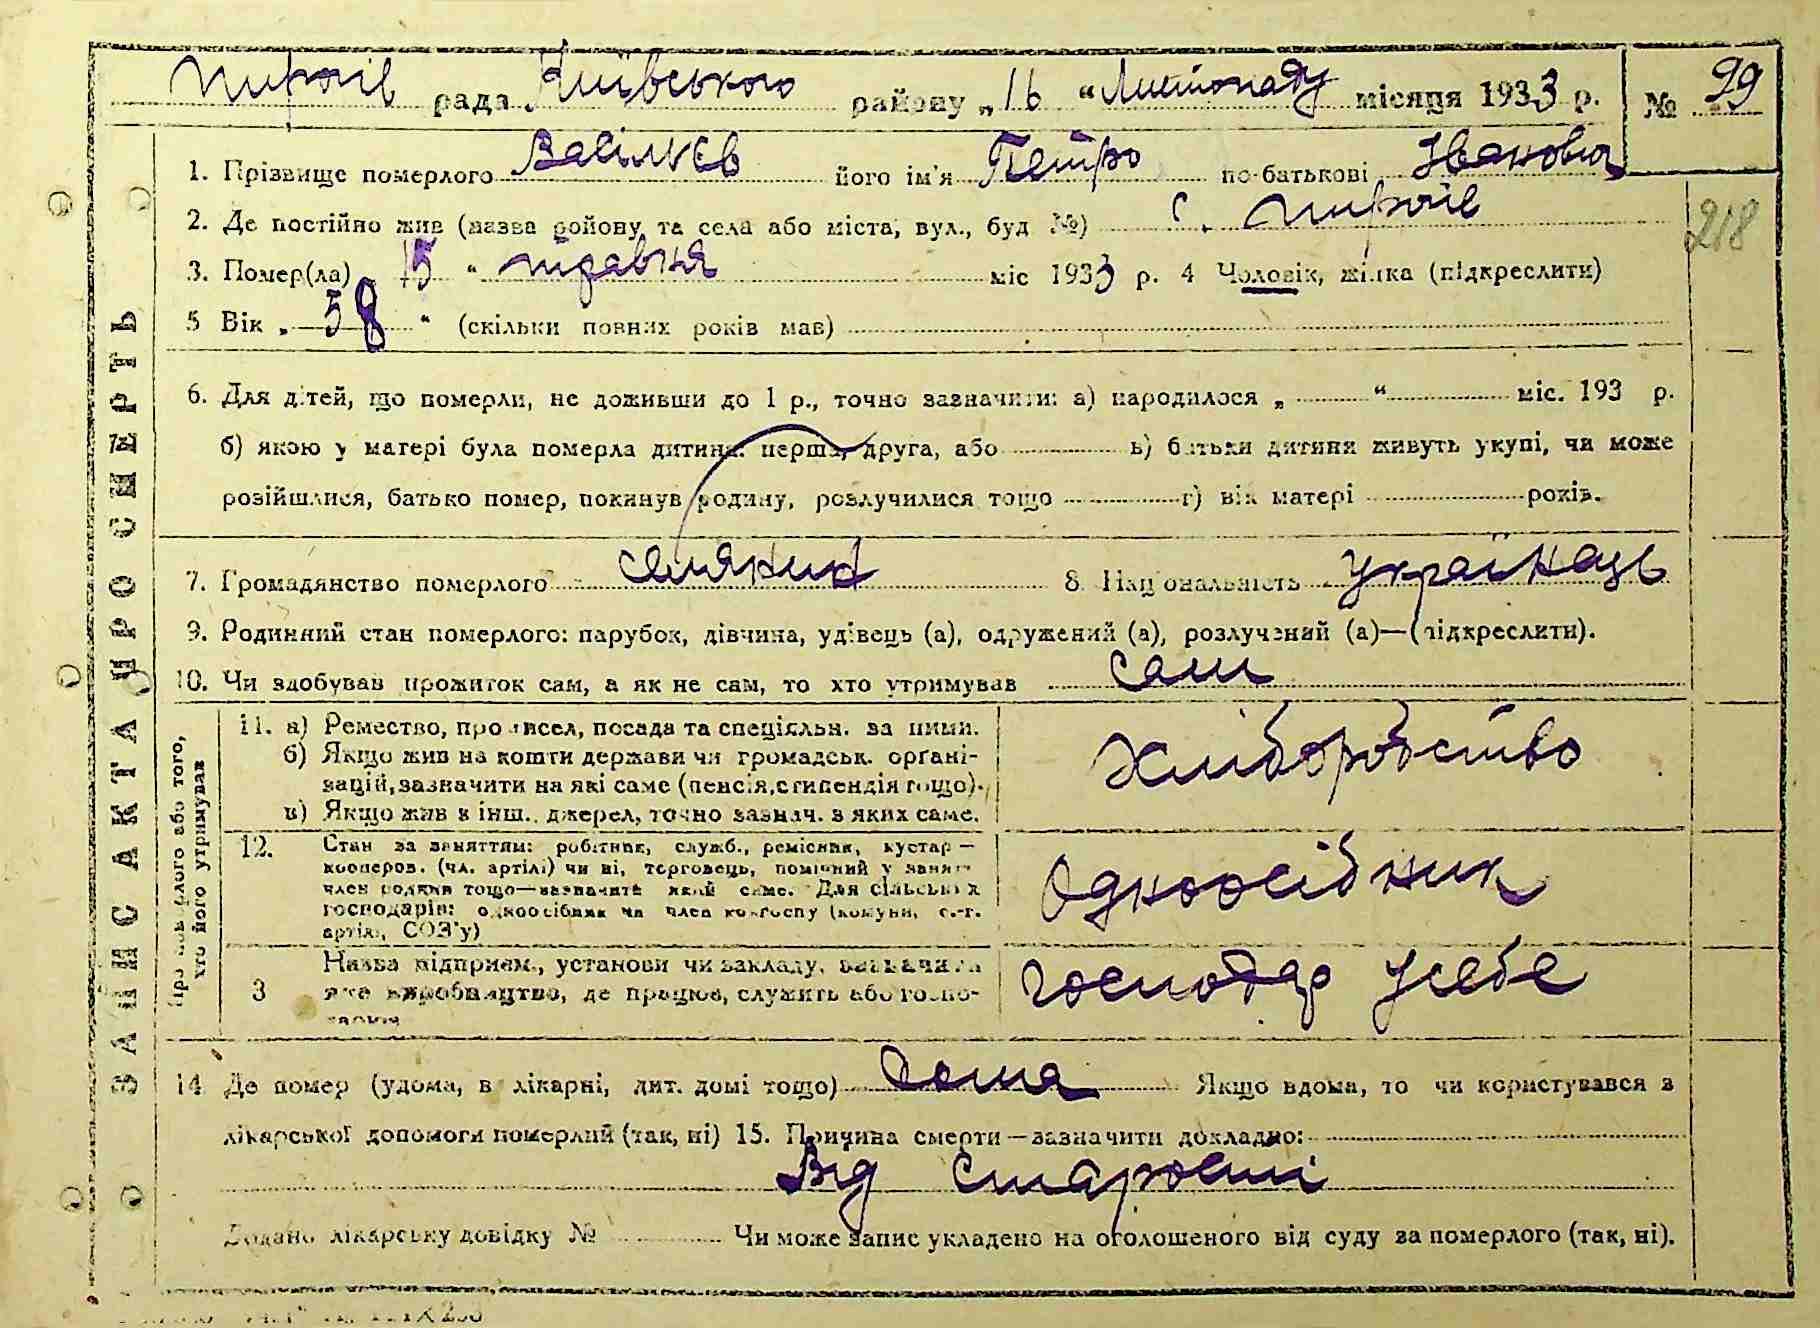 Пирогів рада Київського району „16“ Листопаду місяця 1933 р. № 99
1. Прізвище померлого Васільєв його ім'я Петро по-батькові Іванович
218
2. Де постійно жив (назва району та села або міста, вул., буд №) с. Пирогів
3. Помер(ла) 15 “ травня міс 1933 р. 4 Чоловік, жінка (підкреслити)
5 Вік „ 58 “ (скільки повних років мав)
6. Для дітей, що померли, не доживши до 1 р., точно зазначити: а) народилося „ “ міс. 193 р.
б) якою у матері була померла дитина: перша, друга, або в) батьки дитини живуть укупі, чи може
розійшлися, батько помер, покинув родину, розлучилися тощо г) вік матері років.
7. Громадянство померлого селянин 8. Національність українець
9. Родинний стан померлого: парубок, дівчина, удівець (а), одружений (а), розлучений (а)—(підкреслити).
10. Чи здобував прожиток сам, а як не сам, то хто утримував сам
ЗАПИС АКТА ПРО СМЕРТЬ
Про померлого або того,
хто його утримував
11. а) Ремество, промисел, посада та спеціяльн. за ними.
б) Якщо жив на кошти держави чи громадськ. органі-
зацій, зазначити на які саме (пенсія, стипендія тощо).
в) Якщо жив з інш. джерел, точно зазнач. з яких саме.
Хліборобство
12. Стан за заняттям: робітник, служб., ремісник, кустар—
кооперов. (чл. артілі) чи ні, торговець, помічний у занят
член родини тощо—зазначити який саме. Для сільських
господарів: одноосібник чи член колгоспу (комуни, с.-г.
артіл., СОЗ'у)
Одноосібник
3 Назва підприєм., установи чи закладу, зазначити
яке виробництво, де працює, служить або госпо-
Господар у себе
14 Де помер (удома, в лікарні, дит. домі тощо) дома Якщо вдома, то чи користувався з
лікарської допомоги померлий (так, ні) 15. Причина смерти—зазначити докладно:
Від старости
Додано лікарську довідку № Чи може запис укладено на оголошеного від суду за померлого (так, ні).